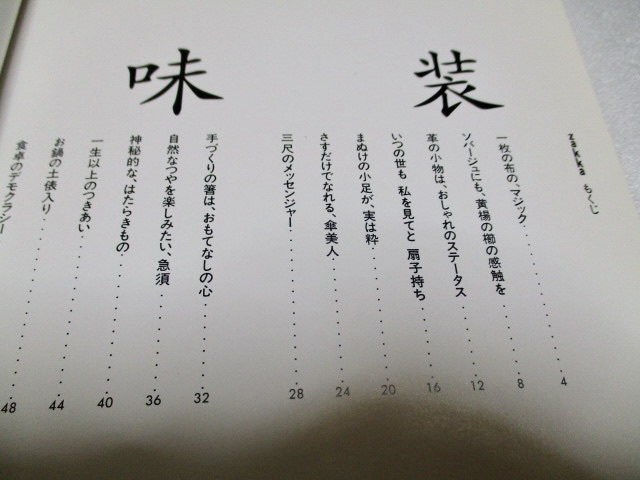 zakka もくじ
装
一枚の布の、マジック 4
ソバージュにも、黄楊の櫛の感触を 8
革の小物は、おしゃれのステータス 12
いつの世も 私を見てと 扇子持ち 16
まぬけの小足が、実は粋 20
さすだけでなれる、傘美人 24
三尺のメッセンジャー 28
味
手づくりの箸は、おもてなしの心 32
自然なつやを楽しみたい、急須 36
神秘的な、はたらきもの 40
一生以上のつきあい 44
お鍋の土俵入り 48
食卓のデモクラシー